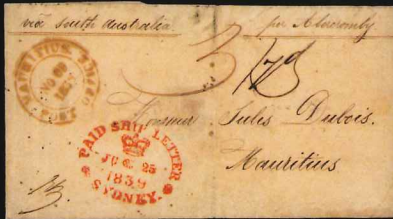 via South Australia
per Abercromby
3
MAURITIUS
POST
Monsieur
Jules Dubois.
Mauritius
PAID SHIP LETTER
25
1839
SYDNEY.